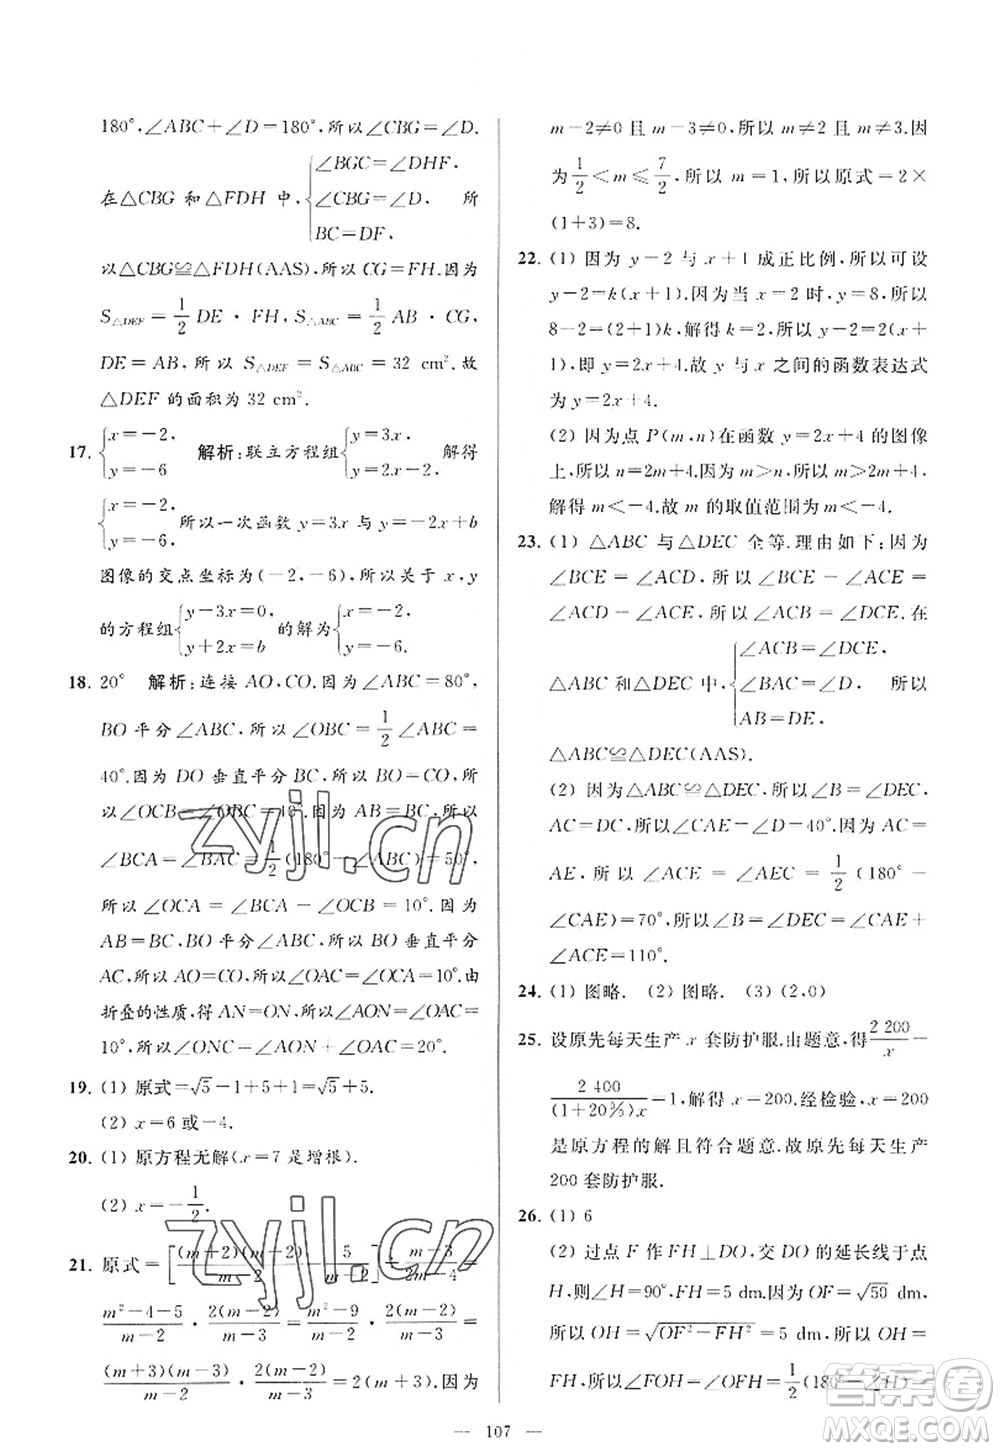 180°,∠ABC+∠D=180°,所以∠CBG=∠D.
在△CBG 和△FDH 中,{∠BGC=∠DHF, ∠CBG=∠D, BC=DF, 所
以△CBG≌△FDH(AAS).所以 CG=FH.因为
S△DEF=1/2 DE·FH,S△ABC=1/2 AB·CG,
DE=AB,所以 S△DEF=S△ABC=32 cm².故
△DEF 的面积为 32 cm².
17. {x=-2, y=-6 解析:联立方程组{y=3x, y=-2x-2, 解得
{x=-2, y=-6. 所以一次函数 y=3x 与 y=-2x+b
图像的交点坐标为(-2,-6).所以关于 x,y
的方程组{y-3x=0, y+2x=b 的解为{x=-2, y=-6.
18. 20° 解析:连接 AO,CO.因为∠ABC=80°,
BO 平分∠ABC,所以∠OBC=1/2∠ABC=
40°.因为 DO 垂直平分 BC,所以 BO=CO,所
以∠OCB=∠OBC=40°.因为 AB=BC,所以
∠BCA=∠BAC=1/2(180°-∠ABC)=50°,
所以∠OCA=∠BCA-∠OCB=10°.因为
AB=BC,BO 平分∠ABC,所以 BO 垂直平分
AC,所以 AO=CO,所以∠OAC=∠OCA=10°.由
折叠的性质,得 AN=ON,所以∠AON=∠OAC=
10°,所以∠ONC=∠AON+∠OAC=20°.
19. (1) 原式=√5-1+5+1=√5+5.
(2) x=6 或-4.
20. (1) 原方程无解(x=7 是增根).
(2) x=-1/2.
21. 原式=[(m+2)(m-2)/(m-2)-5/(m-2)]÷(m-3)/(2m-4)=
(m²-4-5)/(m-2)·2(m-2)/(m-3)=(m²-9)/(m-2)·2(m-2)/(m-3)=
(m+3)(m-3)/(m-2)·2(m-2)/(m-3)=2(m+3).因为
m-2≠0 且 m-3≠0,所以 m≠2 且 m≠3.因
为1/2<m≤7/2,所以 m=1,所以原式=2×
(1+3)=8.
22. (1) 因为 y-2 与 x+1 成正比例,所以可设
y-2=k(x+1).因为当 x=2 时,y=8,所以
8-2=(2+1)k,解得 k=2,所以 y-2=2(x+
1),即 y=2x+4.故 y 与 x 之间的函数表达式
为 y=2x+4.
(2) 因为点 P(m,n)在函数 y=2x+4 的图像
上,所以 n=2m+4.因为 m>n,所以 m>2m+4,
解得 m<-4.故 m 的取值范围为 m<-4.
23. (1) △ABC 与△DEC 全等.理由如下:因为
∠BCE=∠ACD,所以∠BCE-∠ACE=
∠ACD-∠ACE,所以∠ACB=∠DCE.在
△ABC 和△DEC 中,{∠ACB=∠DCE, ∠BAC=∠D, AB=DE, 所以
△ABC≌△DEC(AAS).
(2) 因为△ABC≌△DEC,∠D=40°,所以
AC=DC,所以∠CAE=∠D=40°.因为 AC=
AE,所以∠ACE=∠AEC=1/2(180°-
∠CAE)=70°,所以∠B=∠DEC=∠CAE+
∠ACE=110°.
24. (1) 图略. (2) 图略. (3) (2,0)
25. 设原先每天生产 x 套防护服.由题意,得2 200/x-
2 400/(1+20%)x=1,解得 x=200,经检验,x=200
是原方程的解且符合题意.故原先每天生产
200 套防护服.
26. (1) 6
(2) 过点 F 作 FH⊥DO,交 DO 的延长线于点
H,则∠H=90°,FH=5 dm.因为 OF=√50 dm,
所以 OH=√(OF²-FH²)=5 dm,所以 OH=
FH,所以∠FOH=∠OFH=1/2(180°-∠H)=
— 107 —
zyjl.cn
zyjl.cn
答案圈
MXQE.COM